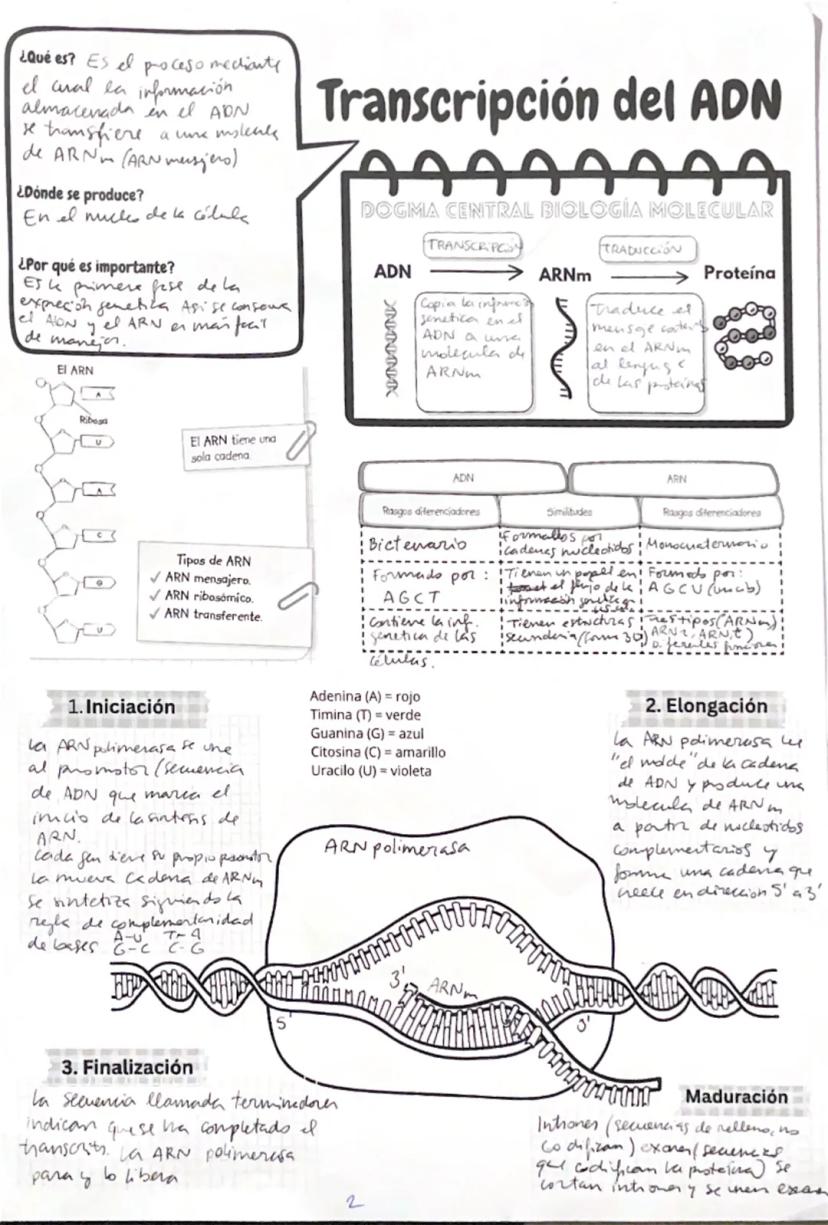 ¿Qué es? Es el proceso mediante
el cual la información
almacenada en el ADN
se transfiere a una molécula
de ARNm (ARN mensjero)
¿Dónde se produce?
En el nucleo de la célula
¿Por qué es importante?
Es la primera fase de la
expreción genetica Asi se conserva
el ADN y el ARN es más facil
de manejar.
Transcripción del ADN
DOGMA CENTRAL BIOLOGÍA MOLECULAR
TRANSCRIPCIÓN
TRADUCCIÓN
ADN
ARNm
Proteína
Copia la inform
genetica en el
ADN a una
molecula de
ARNm
Traduce el
mensaje
en el ARNm
al lenguaje
de las proteínas
El ARN
A
Ribosa
U
A
C
G
U
El ARN tiene una
sola cadena
Tipos de ARN
✓ ARN mensajero.
✓ ARN ribosómico.
✓ ARN transferente.
ADN
ARN
Rasgos diferenciadores
Similitudes
Rasgos diferenciadores
Bictenario
Formados por
cadenas nucleotidos
Monocuaternario
Formado por:
AGCT
Tienen un papel en
el flujo de la
información genética
Formado por:
AGCU (uracilo)
Contiene la inf.
genetica de las
células.
Tienen estructuras
secundaria (forma 3D)
Tres tipos (ARNm,
ARNr, ARNt)
diferentes funciones
1. Iniciación
La ARN polimerasa se une
al promotor (secuencia
de ADN que marca el
inicio de la sintesis de
ARN.
Cada gen tiene su propio promotor
La nueva cadena de ARNm
se sintetiza siguiendo la
regla de complementaridad
de bases A-U T-A
G-C C-G
Adenina (A) = rojo
Timina (T) = verde
Guanina (G) = azul
Citosina (C) = amarillo
Uracilo (U) = violeta
2. Elongación
La ARN polimerasa lee
"el molde" de la cadena
de ADN y produce una
molecula de ARNm
a partir de nucleotidos
complementarios y
forma una cadena que
crece en dirección 5' a 3'
ARN polimerasa
3'
ARNm
5'
3'
3. Finalización
La secuencia llamada terminadora
indican que se ha completado el
transcrito. La ARN polimerasa
para y lo libera
Maduración
Intrones (secuencias de relleno, no
codifican) exones (secuencias
que codifican la proteína) se
cortan intrones y se unen exones
2